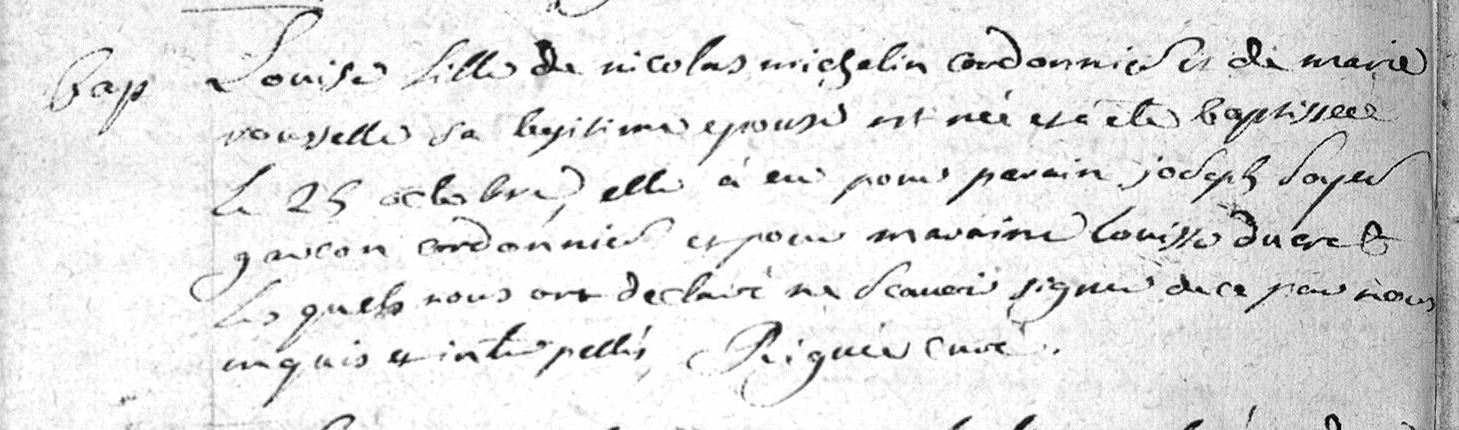 bap Louise fille de nicolas michelin cordonnier et de marie
rousselle sa legitime epouse est née et a été baptissée
le 25 octobre, elle à eu pour parain joseph soyer
garcon cordonnier et pour maraine louisse ducret
lesquels nous ont declaré ne scavoir signer de ce par nous
enquis et interpellés, Riguer curé.